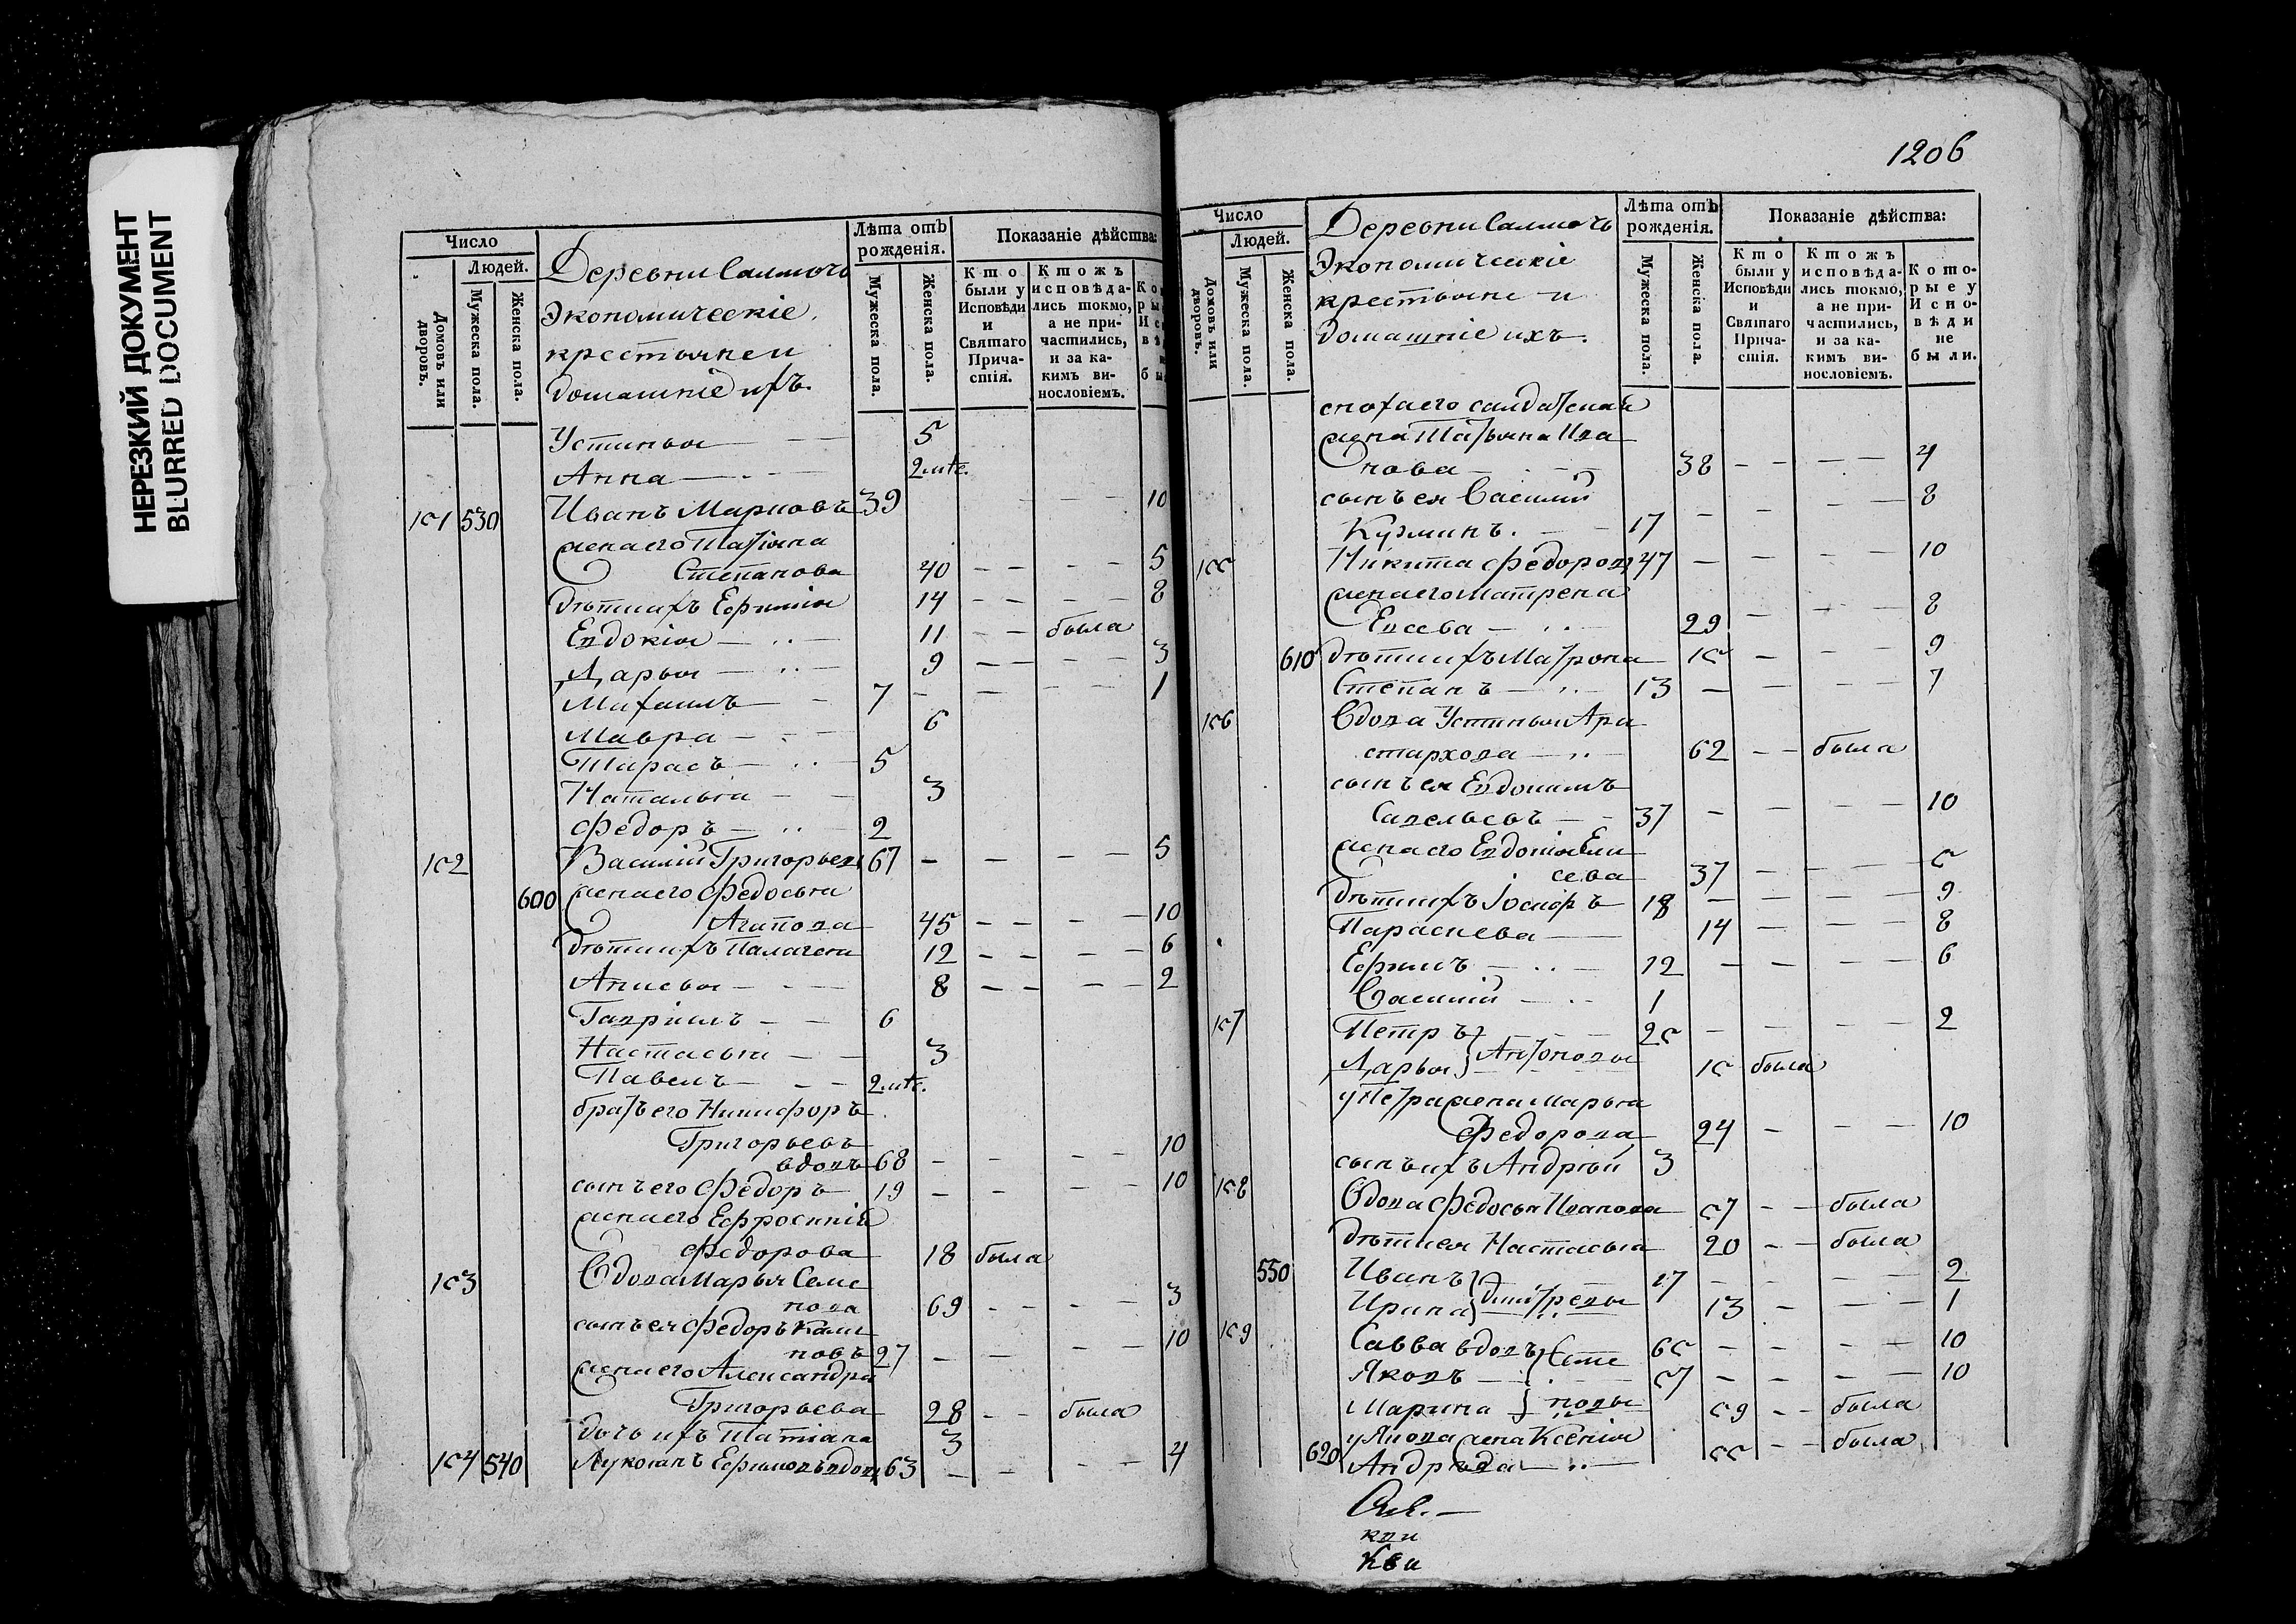 НЕРЕЗКИЙ ДОКУМЕНТ
BLURRED DOCUMENT
Число
Людей.
Домовъ или дворовъ.
Мужеска пола.
Женска пола.
Деревни
Экономическіе
крестьяне и
домашніе ихъ.
Лѣта отъ рожденія.
Мужеска пола.
Женска пола.
Показаніе дѣйства:
Кто были у Исповѣди и Святаго Причастія.
Ктожъ исповѣдались токмо, а не причастились, и за какимъ винословіемъ.
Устинья 5
Анна 2 мѣс.
151 530 Иванъ Марковъ 39 10
жена его Татіяна
Степанова 40 5
дѣти ихъ Ефимія 14 8
Евдокія 11 была
Дарья 9 3
Михаилъ 7 1
Мавра 6
Тарасъ 5
Наталья 3
Федоръ 2
152 Василий Григорьевъ 67 5
600 жена его Федосья
Агапова 45 10
дѣти ихъ Палагея 12 6
8 2
Гавриилъ 6
Настасья 3
Павелъ 2 мѣс.
братъ его Никифоръ
Григорьевъ
вдовъ 68 10
сынъ его Федоръ 19 10
жена его Ефросинія
Федорова 18 была
153 Вдова Марья Семе
нова 69 3
сынъ ея Федоръ
новъ 27 10
жена его Александра
Григорьева 28 была
дочь ихъ Татіана 3
154 540 Лукоянъ Ефимовъ вдовъ 63 4
1206
Число
Людей.
Домовъ или дворовъ.
Мужеска пола.
Женска пола.
Деревни
Экономическіе
крестьяне и
домашніе ихъ.
Лѣта отъ рожденія.
Мужеска пола.
Женска пола.
Показаніе дѣйства:
Кто были у Исповѣди и Святаго Причастія.
Ктожъ исповѣдались токмо, а не причастились, и за какимъ винословіемъ.
Которые у Исповѣди не были.
сноха его салдатская
жена Татьяна Ива
нова 38 4
сынъ ея Василий
Кузминъ. 17 8
155 Никита Федоровъ 47 10
жена его Матрена
Евсева 29 8
610 дѣти ихъ Матрона 15 9
Степанъ 13 7
156 Вдова Устинья Ари
стархова 62 была
сынъ ея Евдокимъ
Савельевъ 37 10
жена его Евдокія Ели
сева 37 5
дѣти ихъ Іосифъ 18 9
Параскева 14 8
Ефимъ 12 6
Василий 1
157 Петръ 25 2
Антоновы
Дарья 15 была
у Петра жена Марья
Федорова 24 10
сынъ ихъ Андрѣй 3
158 Вдова Федосья Иванова 57 была
дѣти ея Настасья 20 была
550 Иванъ 17 2
Дмитревы
Ирина 13 1
159 Савва вдовъ 65 10
Степановы
Яковъ 57 10
Марина 59 была
у Якова жена Ксенія
620 Андрѣева 55 была